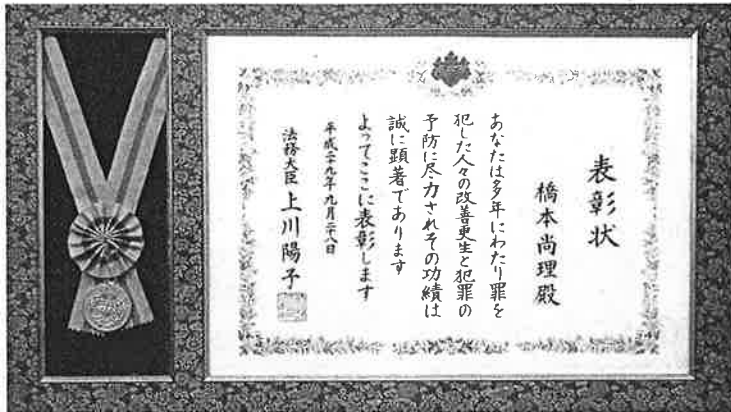 表彰状
橋本尚理殿
あなたは多年にわたり罪を
犯した人々の改善更生と犯罪の
予防に尽力されその功績は
誠に顕著であります
よってここに表彰します
平成二九年九月二八日
法務大臣 上川陽子